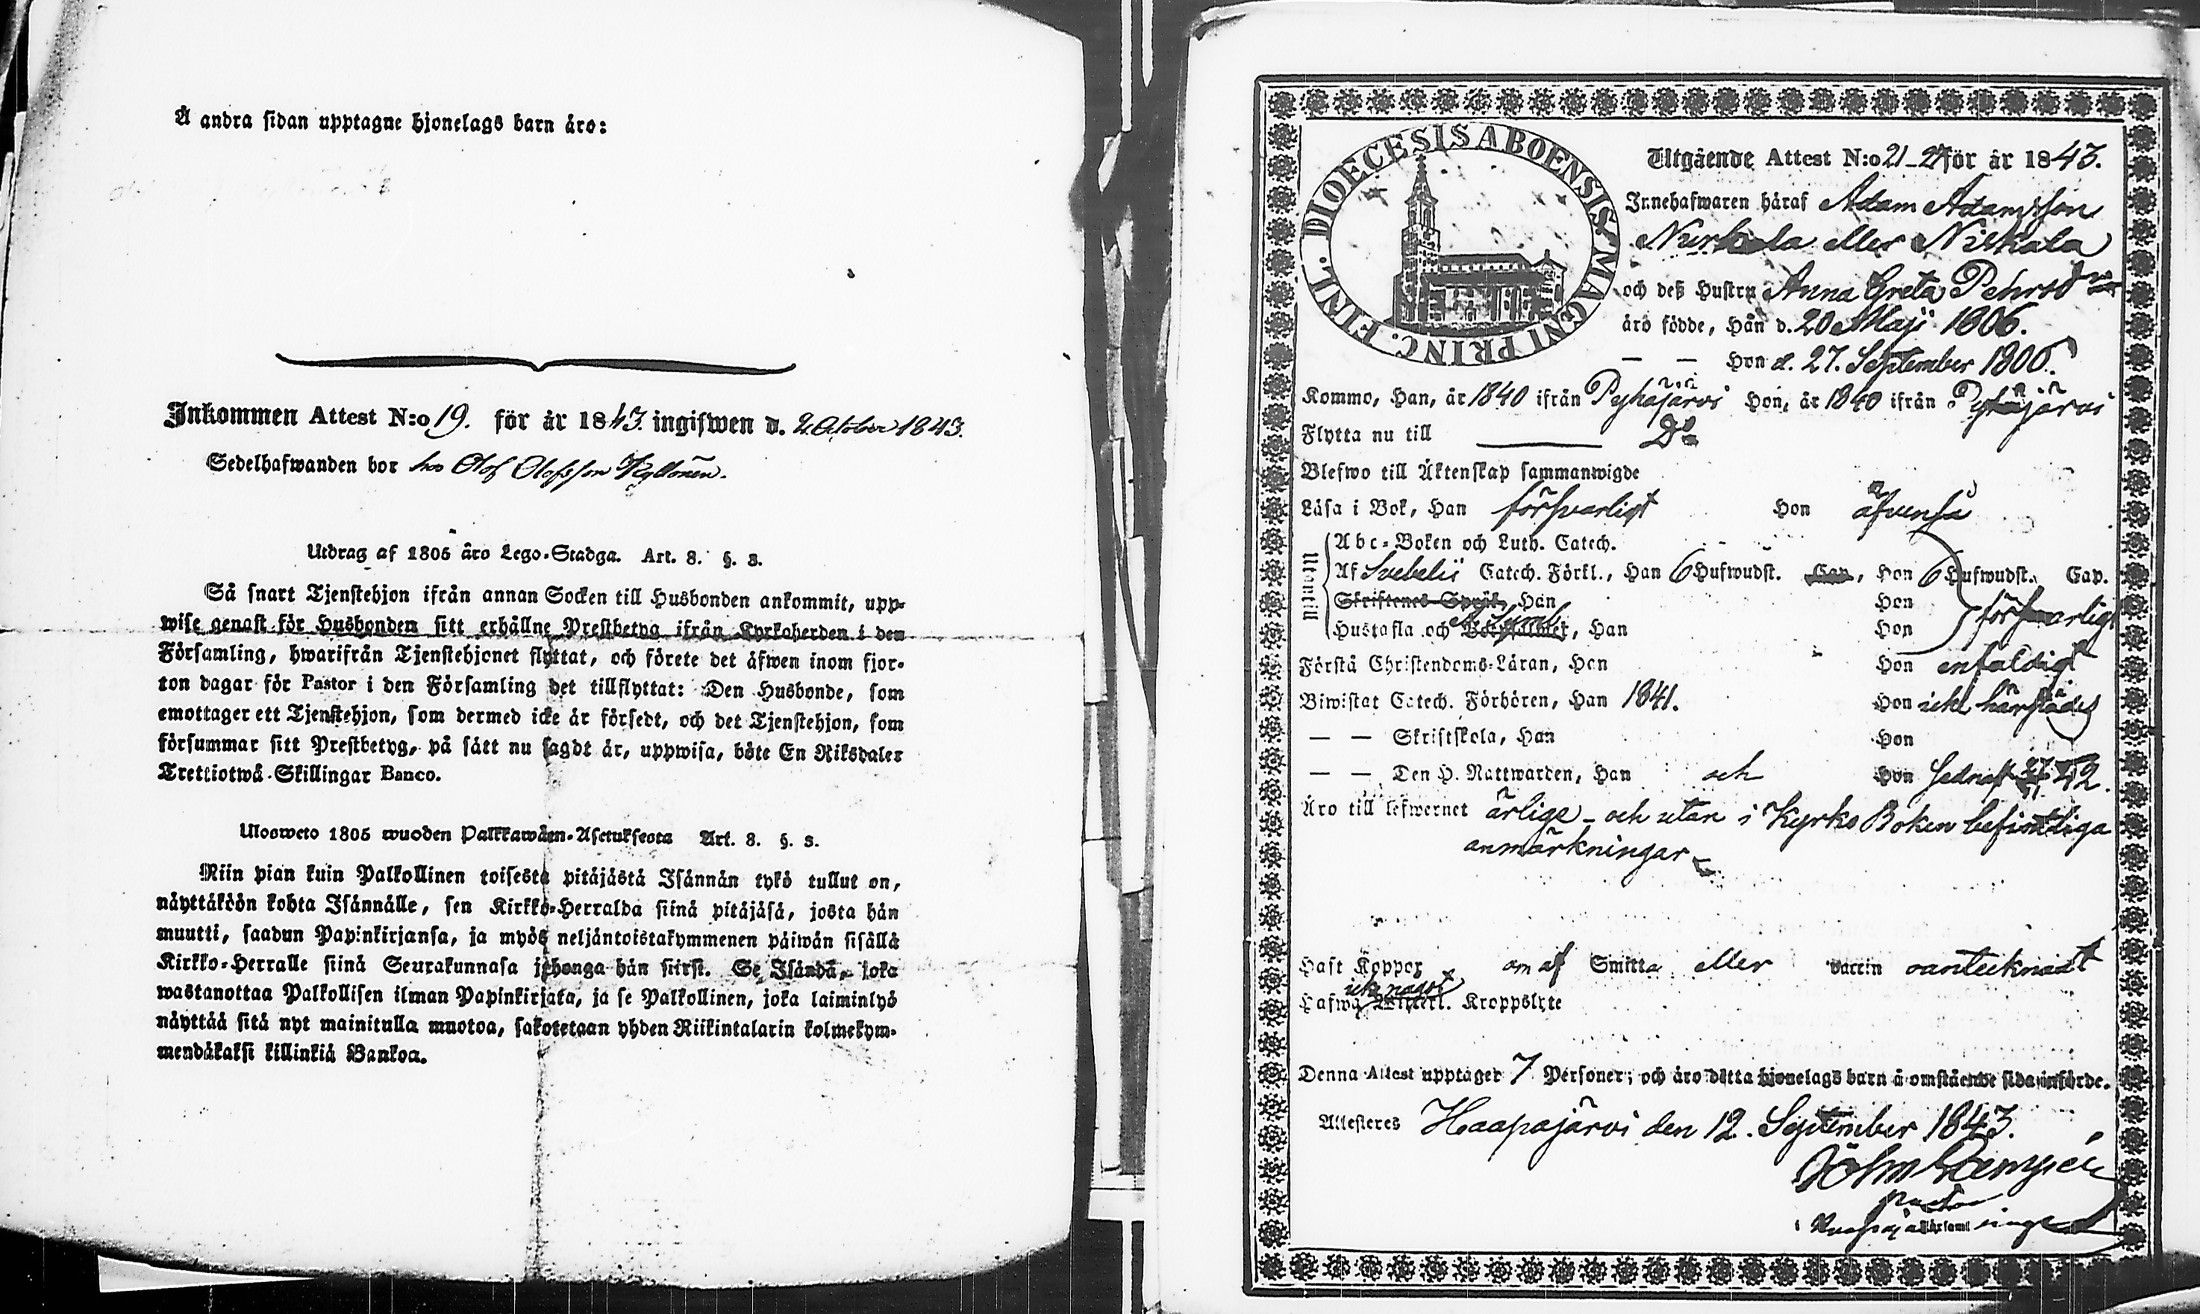 Å andra sidan upptagne hjonelags barn äro:
Inkommen Attest N:o 19. för år 1843. ingifwen d. 2 October 1843.
Sedelhafwanden bor hos Olof Olofsson Kyllönen.
Utdrag af 1805 års Lego-Stadga. Art. 8. §. 3.
Så snart Tjenstehjon ifrån annan Socken till Husbonden ankommit, upp-
wise genast för Husbonden sitt erhållne Prestbetyg ifrån Kyrkoherden i den
Församling, hwarifrån Tjenstehjonet flyttat, och förete det äfwen inom fjor-
ton dagar för Pastor i den Församling det tillflyttat: Den Husbonde, som
emottager ett Tjenstehjon, som dermed icke är försedt, och det Tjenstehjon, som
försummar sitt Prestbetyg, på sätt nu sagdt är, uppwisa, böte En Riksdaler
Trettiotwå Skillingar Banco.
Ulosweto 1805 wuoden Palkkawäen-Asetuksesta Art. 8. §. 3.
Niin pian kuin Palkollinen toisesta pitäjästä Isännän tykö tullut on,
näyttäköön kohta Isännälle, sen Kirkko-Herralda siinä pitäjäsä, josta hän
muutti, saadun Papinkirjansa, ja myös neljäntoistakymmenen päiwän sisällä
Kirkko-Herralle siinä Seurakunnasa johonga hän siirst. Se Isändä, joka
wastanottaa Palkollisen ilman Papinkirjata, ja se Palkollinen, joka laiminlyö
näyttää sitä nyt mainitulla muotoa, sakotetaan yhden Riikintalarin kolmekym-
mendäkaksi killinkiä Bankoa.
DIOECESIS ABOENSIS MAGNI PRINC. FINL.
Utgående Attest N:o 21-27 för år 1843.
Innehafwaren häraf Adam Adamsson
Nurkala eller Niskala
och deß Hustru Anna Greta Pehrsdr
äro födde, Han d. 20 Maji 1806.
— — Hon d. 27. September 1806.
Kommo, Han, år 1840 ifrån Pyhäjärvi Hon, år 1840 ifrån Pyhäjärvi
Flytta nu till Do
Blefwo till Äktenskap sammanwigde
Läsa i Bok, Han försvarligt Hon äfvenså
Utantill
Abc-Boken och Luth. Catech.
Af Svebelii Catech. Förkl., Han 6 Hufwudst. Cap., Hon 6 Hufwudst. Cap.
Skriftenes Språk, Han Hon försvarligt
Hustafla och A. Symb. Han Hon
Förstå Christendoms-Läran, Han Hon enfaldigt
Biwistat Catech. Förhören, Han 1841. Hon icke härstädes
— — Skriftskola, Han Hon
— — Den H. Nattwarden, Han och Hon sednast 42.
Äro till lefwernet ärlige - och utan i Kyrko Boken befintliga
anmärkningar
Haft Koppor om af Smitta eller Vaccin oantecknadt
Hafwa icke något Witterl. Kroppslyte
Denna Attest upptager 7 Personer; och äro detta hjonelags barn å omstående sida införde.
Attesteres Haapajärvi den 12. September 1843.
Pastor